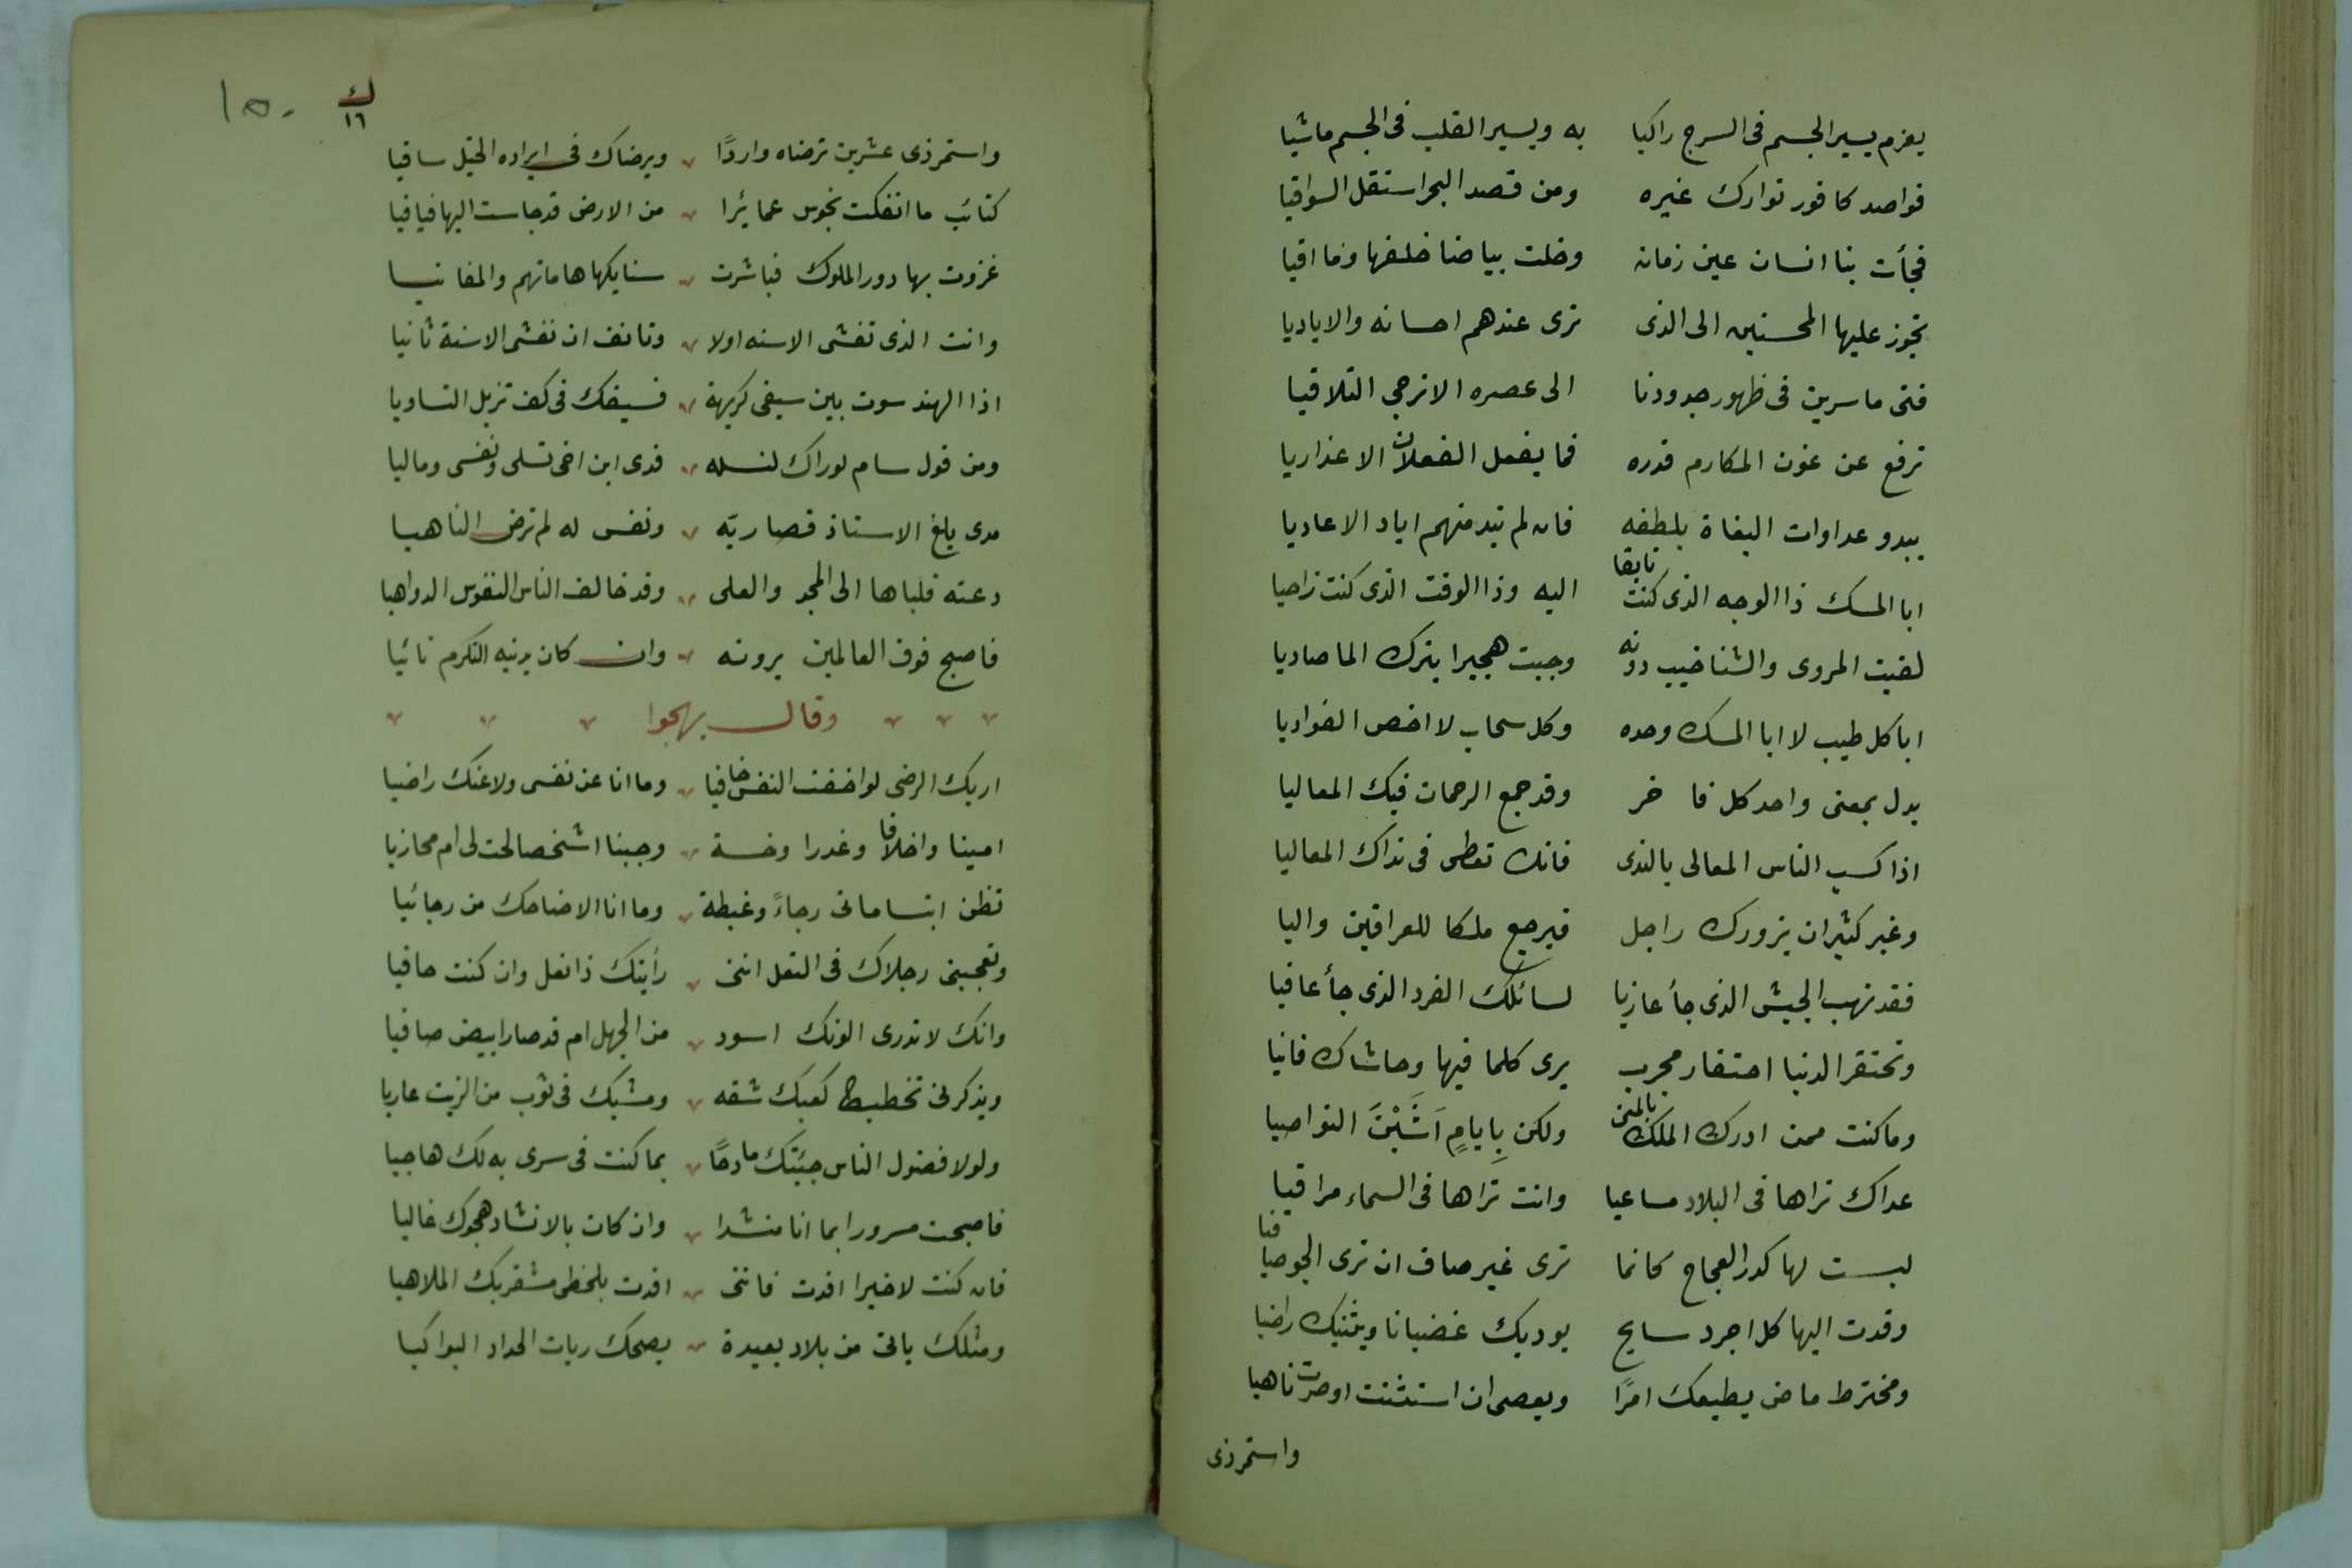 يعزم يسير الجسم فى السرج راكبا به ويسير القلب فى الجسم ماشيا
قواصد كافور توارك غيره ومن قصد البحر استقل السواقيا
فجأت بنا انسان عين زمانه وخلت بياضا خلفها ومااقيا
تجوز عليها المحسنين الى الذى ترى عندهم احسانه والاياديا
فتى ماسرين فى ظهور جدودنا الى عصره الا نرجى التلاقيا
ترفع عن عون المكارم قدره فما يفعل الفعلات الا عذاريا
يبدو عداوات البغاة بلطفه فان لم تبد منهم اباد الاعاديا
ابا المسك ذا الوجه الذى كنت تايقا اليه وذا الوقت الذى كنت راجيا
لقيت المروى والشناخيب دونه وجبت هجيرا يترك الما صاديا
ابا كل طيب لا ابا المسك وحده وكل سحاب لا اخص الغواديا
يدل بمعنى واحد كل فاخر وقد جمع الرحمان فيك المعاليا
اذا كسب الناس المعالى بالندى فانك تعطى فى نداك المعاليا
وغير كثير ان يزورك راجل فيرجع ملكا للعراقين واليا
فقد تهب الجيش الذى جأ غازيا لسائلك الفرد الذى جأ عافيا
وتحتقر الدنيا احتقار مجرب يرى كلما فيها وحاشاك فانيا
وماكنت ممن ادرك الملك بالمنى ولكن بِايامٍ اَشَبْنَ النواصيا
عداك تراها فى البلاد مساعيا وانت تراها فى السماء مراقيا
لبست لها كدر العجاج كانما ترى غير صاف ان ترى الجو صافيا
وقدت اليها كل اجرد سابح يوديك غضبانا ويثنيك راضيا
ومخترط ماض يطيعك امرًا ويعصى ان استثنت اوصرت ناهيا
واستمرذى
ك
١٦
١٥٠
واستمرذى عشرين ترضاه واردًا ويرضاك فى ايراده الخيل ساقيا
كتائب ما انفكت تجوس عمائرا من الارض قد جاست اليها فيافيا
غزوت بها دور الملوك فباشرت سنابكها هاماتهم والمغانيا
وانت الذى تغشى الاسنه اولا وتانف ان تغشى الاسنة ثانيا
اذا الهند سوت بين سيفى كريهة فسيفك فى كف تزيل التساويا
ومن قول سام لوراك لنسله فدى ابن اخى نسلى ونفسى وماليا
مدى بلغ الاستاذ قصا ربّه ونفس له لم ترض الناهيا
دعته فلباها الى المجد والعلى وقد خالف الناس النفوس الدواهيا
فاصبح فوق العالمين يرونه وان كان يدنيه التكرم نائيا
وقال يهجوا
اريك الرضى لو اخفت النفس خافيا وما انا عن نفسى ولا عنك راضيا
امينا واخلافا وغدرا وخسة وجبنا اشخصا لحت لى ام مخازيا
تظن ابتساماتى رجاءً وغبطة وما انا الا ضاحك من رجائيا
وتعجبنى رجلاك فى النعل اننى رأيتك ذا نعل وان كنت حافيا
وانك لا تدرى الونك اسود من الجهل ام قد صار ابيض صافيا
ويذكرنى تخطيط كعبك شقه ومشيك فى ثوب من الزيت عاريا
ولولا فضول الناس جيئتك مادحًا بما كنت فى سرى به لك هاجيا
فاصبحت مسرورا بما انا منشدا وان كان بالانشاد هجوك غاليا
فان كنت لاخيرا افدت فاننى افدت بلحظى مشفريك الملاهيا
ومثلك ياتى من بلاد بعيدة يضحك ربات الحداد البواكيا